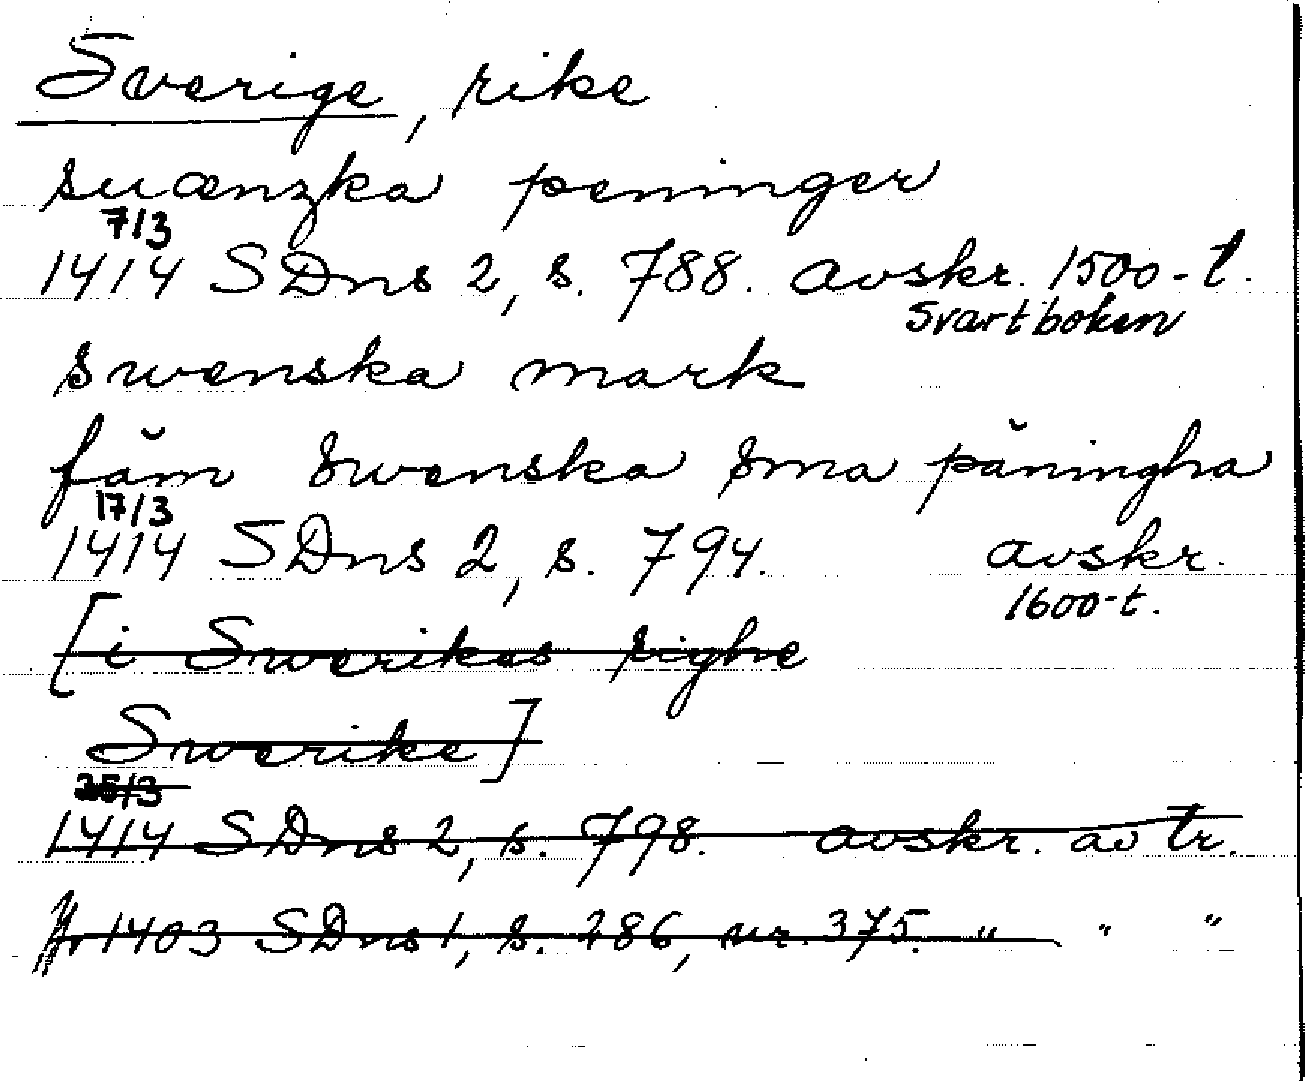 Sverige, rike
suænzka peninger
7/3
1414 SDns 2, s. 788. avskr. 1500-t.
Svartboken
swenska mark
făm swenska sma păningha
17/3
1414 SDns 2, s. 794. avskr.
1600-t.
[i Swerikes righe
Swerike]
25/3
1414 SDns 2, s. 798. avskr. av tr.
1403 SDns 1, s. 286, nr. 375. " " "